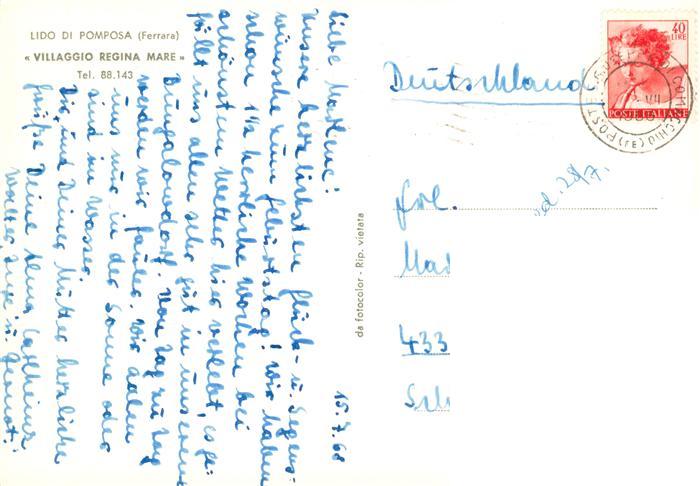 LIDO DI POMPOSA (Ferrara)
« VILLAGGIO REGINA MARE »
Tel. 88.143
15.7.68
Liebe Marlene!
Unsere herzlichsten Glück- u. Segens-
wünsche zum Geburtstag! Wir haben
schon 1½ herrliche Wochen bei
schönstem Wetter hier verlebt, es ge-
fällt uns allen sehr gut in unserem
Bungalowdorf. Von Tag zu Tag
werden wir fauler, wir aalen
uns nur in der Sonne oder
sind im Wasser.
Dir und Deiner Mutter herzliche
Grüße Deine
Walter, Inge u. Gernot.
da fotocolor - Rip. vietata
40
LIRE
POSTE ITALIANE
COMACCHIO (FE)
Deutschland
Frl.
Mad
433
Sch